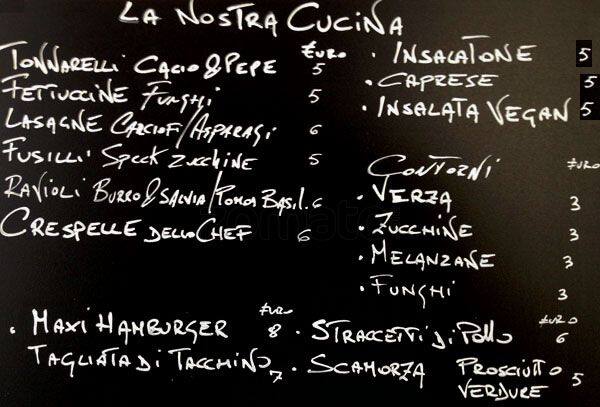 LA NOSTRA CUCINA
€URO
TONNARELLI CACIO & PEPE 5
FETTUCCINE FUNGHI 5
LASAGNE CARCIOFI/ASPARAGI 6
FUSILLI SPECK ZUCCHINE 5
RAVIOLI BURRO & SALVIA/POMO BASIL. 6
CRESPELLE DELLO CHEF 6
· INSALATONE 5
· CAPRESE 5
· INSALATA VEGAN 5
CONTORNI €URO
· VERZA 3
· ZUCCHINE 3
· MELANZANE 3
· FUNGHI 3
€URO
· MAXI HAMBURGER 8
TAGLIATA DI TACCHINO 7
€URO
· STRACCETTI DI POLLO 6
· SCAMORZA PROSCIUTTO 5
VERDURE